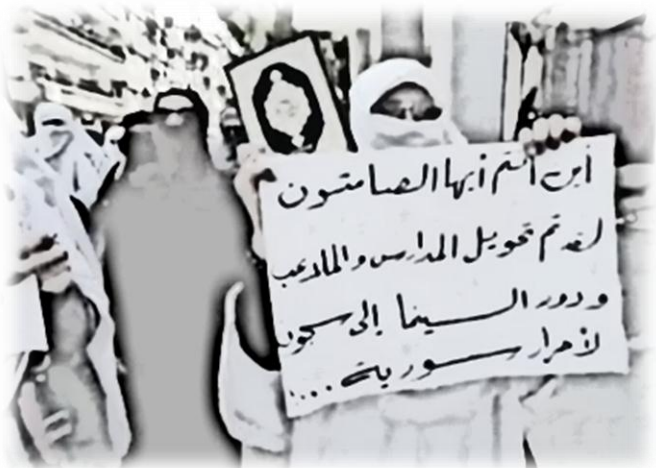 أين أنتم أيها الصامتون
لقد تم تحويل المدارس والملاعب
ودور السينما إلى سجون
لأحرار سورية ....